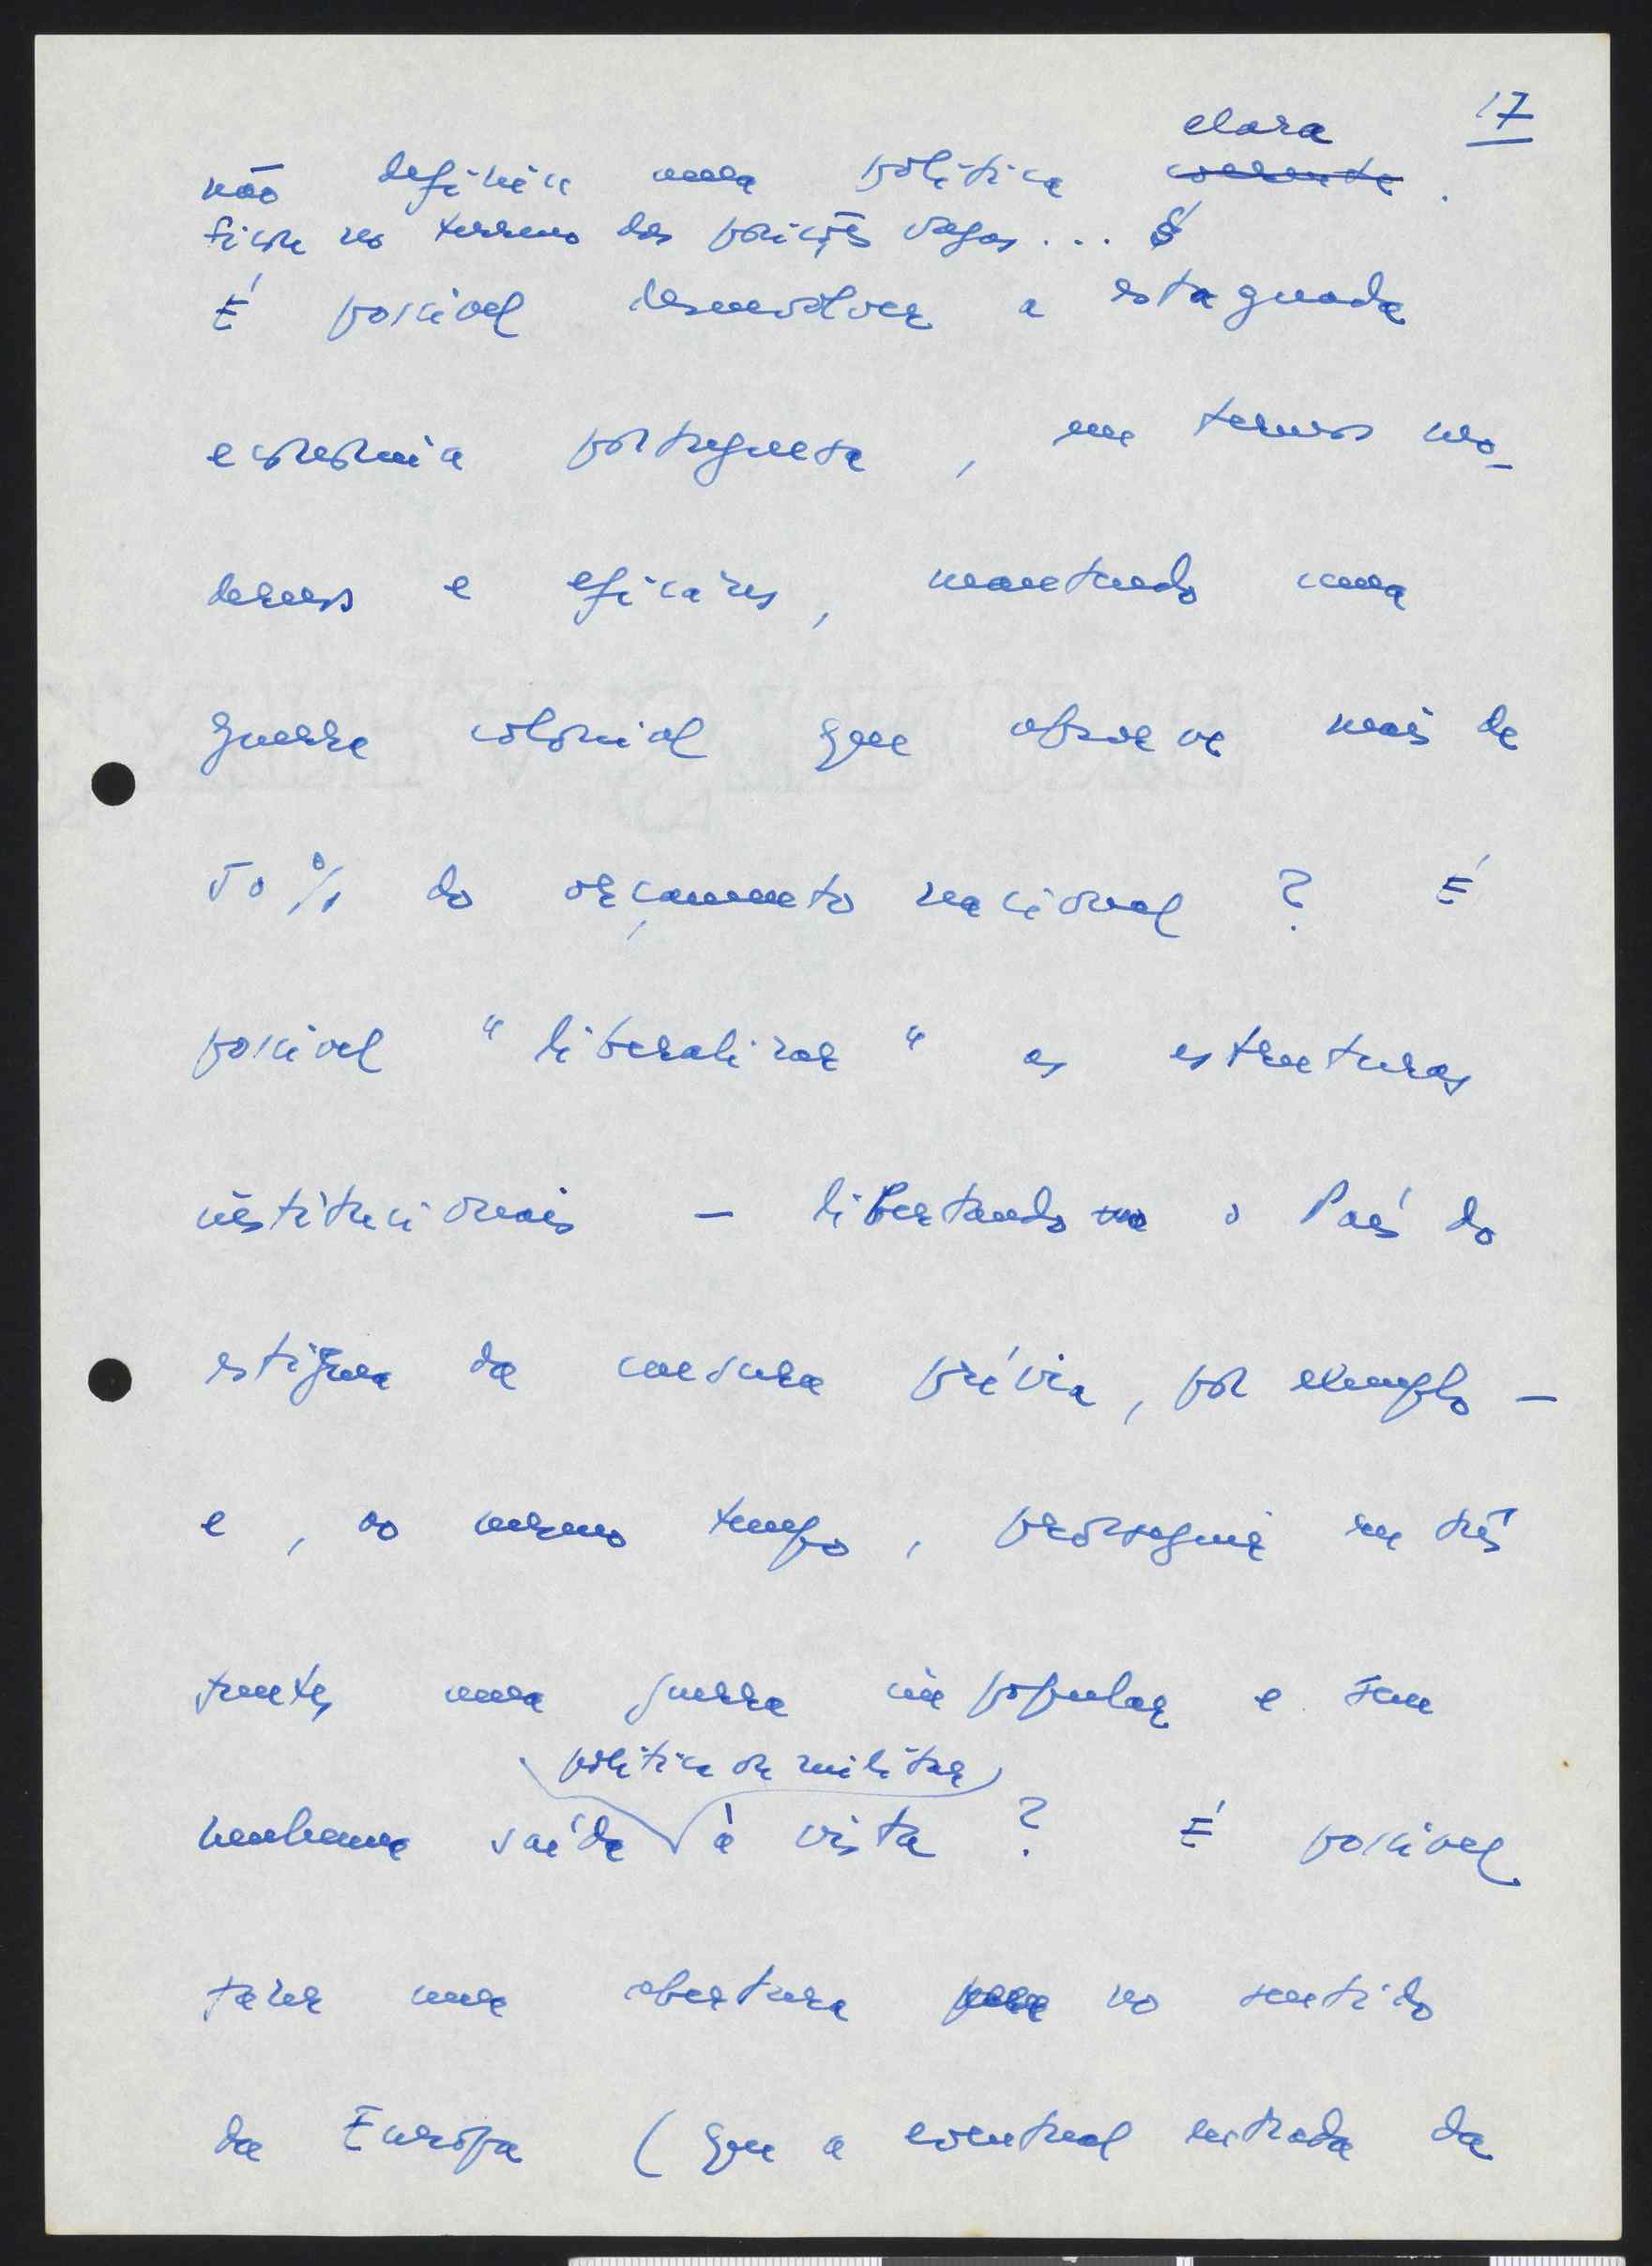 17
clara
não definiu uma política coerente.
ficou no terreno das posições vagas...
É possível desenvolver a estagnada
economia portuguesa, em termos mo-
dernos e eficazes, mantendo uma
guerra colonial que absorve mais de
50% do orçamento nacional? É
possível "liberalizar" as estruturas
institucionais – libertando o País do
estigma da censura prévia, por exemplo –
e, ao mesmo tempo, prosseguir em três
frentes uma guerra impopular e sem
política ou militar
nenhuma saída à vista? É possível
fazer uma abertura para no sentido
da Europa (que a eventual entrada da